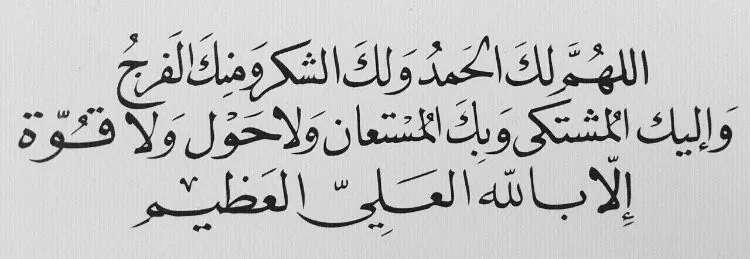 اللهُمَّ لِكَ الحَمدُ وَلكَ الشكر وَمِنكَ الفَرجُ
وَإليك المُشتكَى وَبِكَ المُسْتعان وَلاحَوْل وَلا قُوّة
إِلّا بالله العَليّ العَظيم